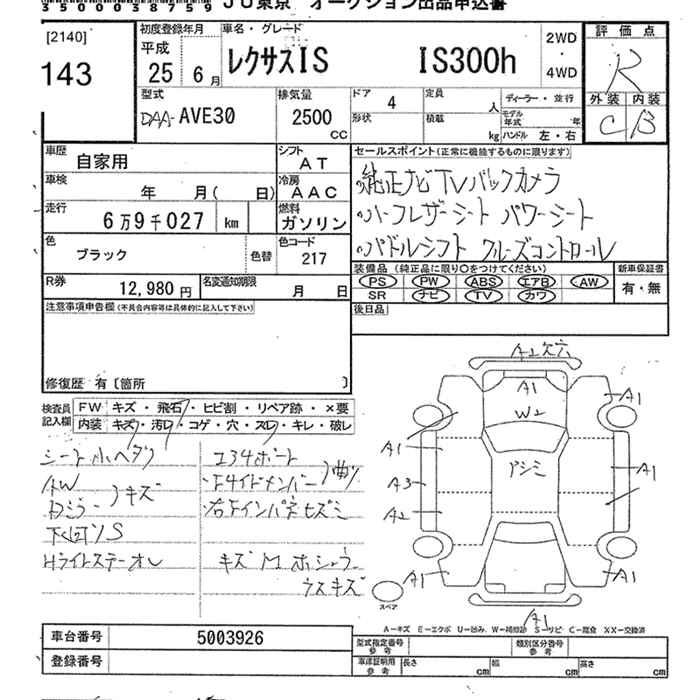 35000058759 JU東京 オークション出品申込書
[2140]
143
初度登録年月
平成
25 6月
車名・グレード
レクサスIS IS300h
2WD
・
4WD
評価点
R
外装 内装
C B
型式
DAA-AVE30
排気量
2500
CC
ドア 4
形状
定員 人
積載 kg
ディーラー・並行
モデル年式 年
ハンドル 左・右
車歴
自家用
シフト
AT
車検
年 月( 日)
冷房
AAC
走行
6万9千027 km
燃料
ガソリン
色
ブラック
色替
色コード
217
R券
12,980円
名変通知期限
月 日
セールスポイント(正常に機能するものに限ります)
純正ナビTVバックカメラ
ハーフレザーシート パワーシート
パドルシフト クルーズコントロール
装備品(純正品に限り○をつけてください)
PS PW ABS エアB AW
SR ナビ TV カワ
新車保証書
有・無
後日品
注意事項申告欄(不具合内容等は具体的に記入して下さい)
修復歴 有〔箇所 〕
検査員
記入欄
FW キズ・飛石・ヒビ割・リペア跡・×要
内装 キズ・汚レ・コゲ・穴・スレ・キレ・破レ
シート小ヘタリ
AW
キズ
下回リS
Hライトステーオレ
コアサポート
曲り
右Fインパネヒズミ
キズ
ウスキズ
A2
A1
W2
A1
A1
A3
A2
A1
A1
A1
A1
スペア
A－キズ E－エクボ U－凹み W－補修跡 S－サビ C－腐食 XX－交換済
車台番号 5003926
登録番号
型式指定番号
参考
類別区分番号
参考
車庫証明用
参考
長さ cm
幅 cm
高さ cm